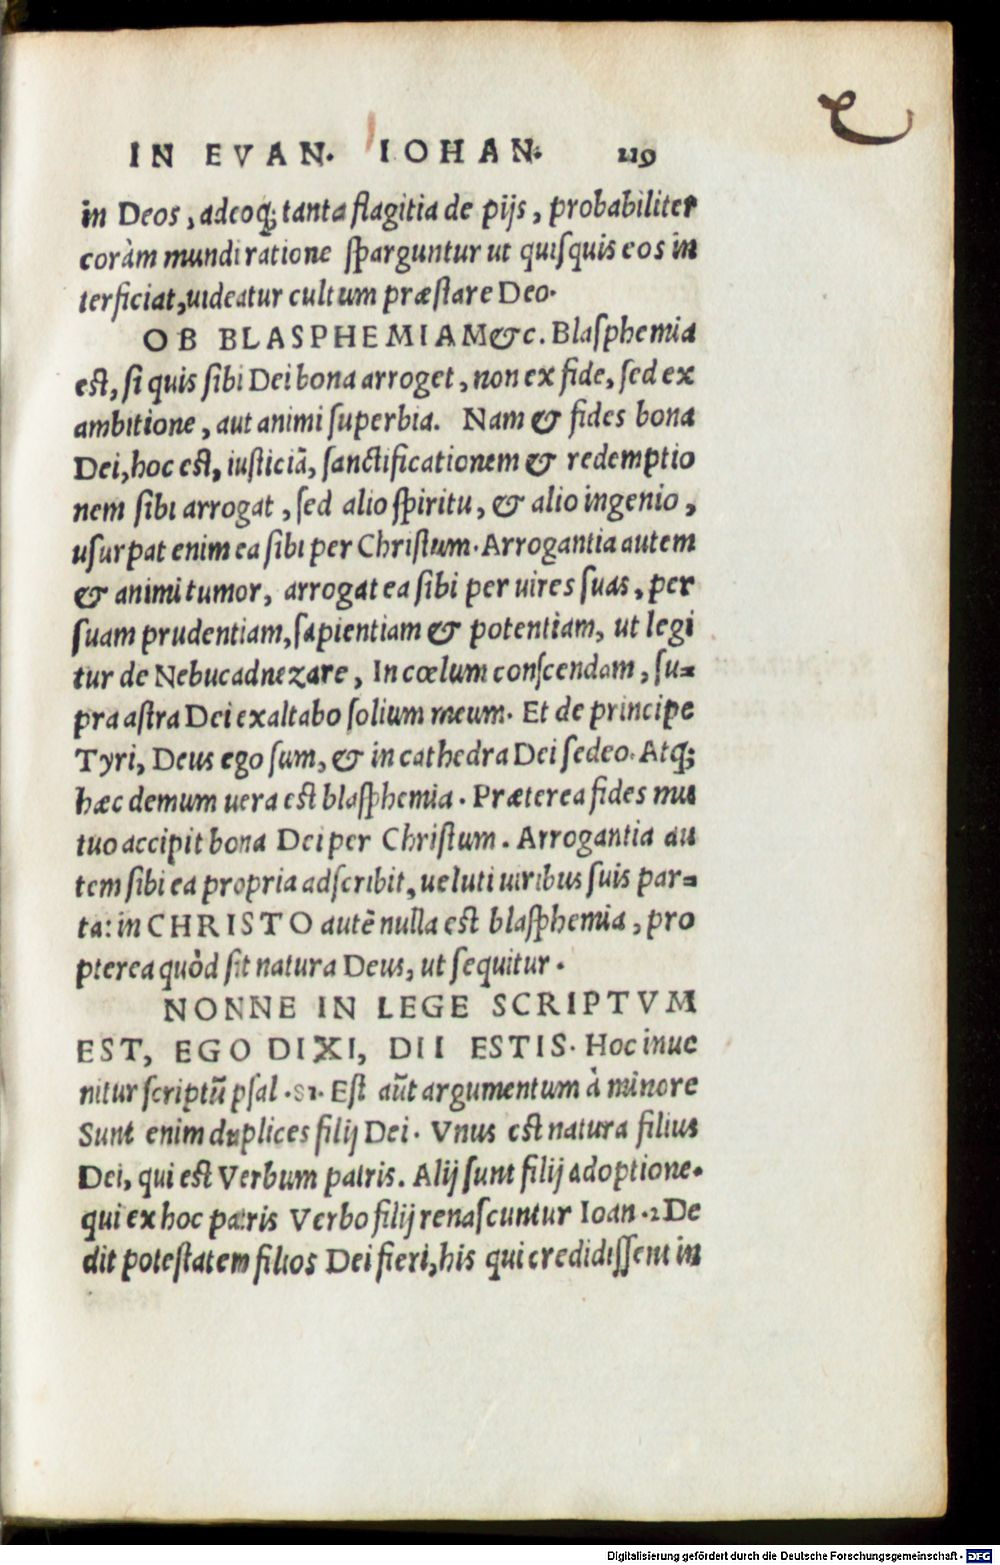 IN EVAN. IOHAN. 219
in Deos, adeoq; tanta flagitia de pijs, probabiliter
coràm mundi ratione sparguntur ut quisquis eos in
terficiat, uideatur cultum præstare Deo.
OB BLASPHEMIAM &c. Blasphemia
est, si quis sibi Dei bona arroget, non ex fide, sed ex
ambitione, aut animi superbia. Nam & fides bona
Dei, hoc est, iusticiã, sanctificationem & redemptio
nem sibi arrogat, sed alio spiritu, & alio ingenio,
usurpat enim ea sibi per Christum. Arrogantia autem
& animi tumor, arrogat ea sibi per uires suas, per
suam prudentiam, sapientiam & potentiam, ut legi
tur de Nebucadnezare, In cœlum conscendam, su-
pra astra Dei exaltabo solium meum. Et de principe
Tyri, Deus ego sum, & in cathedra Dei sedeo. Atq;
hæc demum uera est blasphemia. Præterea fides mu
tuo accipit bona Dei per Christum. Arrogantia au
tem sibi ea propria adscribit, ueluti uiribus suis par-
ta: in CHRISTO autẽ nulla est blasphemia, pro
pterea quòd sit natura Deus, ut sequitur.
NONNE IN LEGE SCRIPTVM
EST, EGO DIXI, DII ESTIS. Hoc inue
nitur scriptũ psal. 81. Est aũt argumentum à minore
Sunt enim duplices filij Dei. Vnus est natura filius
Dei, qui est Verbum patris. Alij sunt filij adoptione.
qui ex hoc patris Verbo filij renascuntur Ioan. 1 De
dit potestatem filios Dei fieri, his qui credidissent in
Digitalisierung gefördert durch die Deutsche Forschungsgemeinschaft - DFG